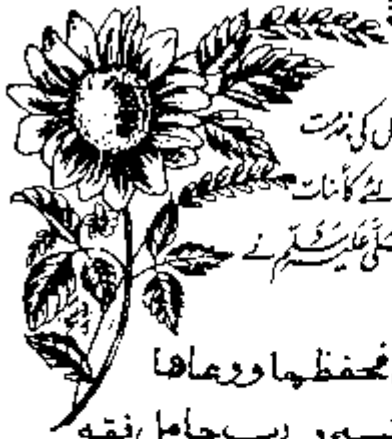 کی خدمت
کائنات
صلی علیہ وسلم نے
فحفظها ووعاها
رب حامل فقه